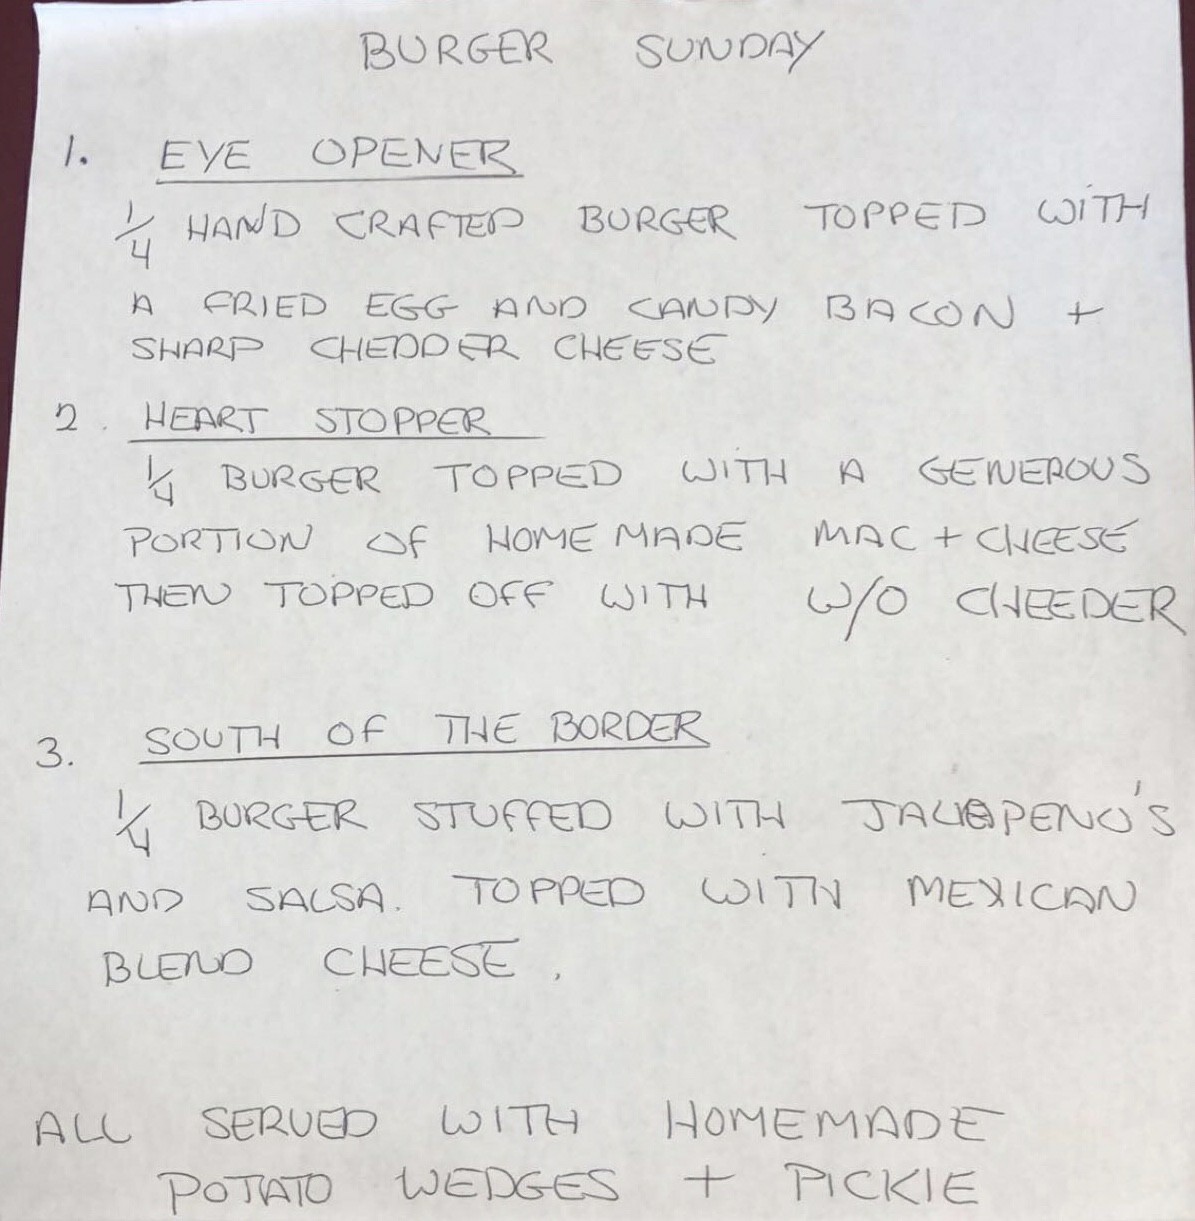 BURGER SUNDAY
1. EYE OPENER
1/4 HAND CRAFTED BURGER TOPPED WITH
A FRIED EGG AND CANDY BACON +
SHARP CHEDDER CHEESE
2. HEART STOPPER
1/4 BURGER TOPPED WITH A GENEROUS
PORTION OF HOME MADE MAC + CHEESE
THEN TOPPED OFF WITH W/O CHEEDER
3. SOUTH OF THE BORDER
1/4 BURGER STUFFED WITH JALAPENO'S
AND SALSA. TOPPED WITH MEXICAN
BLEND CHEESE.
ALL SERVED WITH HOMEMADE
POTATO WEDGES + PICKIE